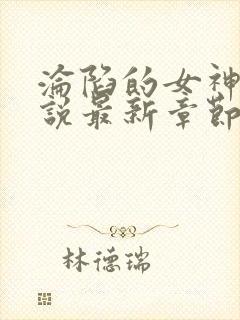 淪陷的女神
說最新章節
林德瑞